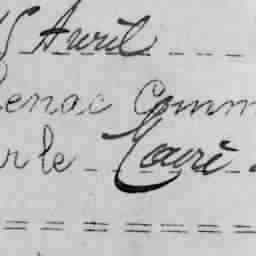 15 Avril
enac Comm
r le Couré